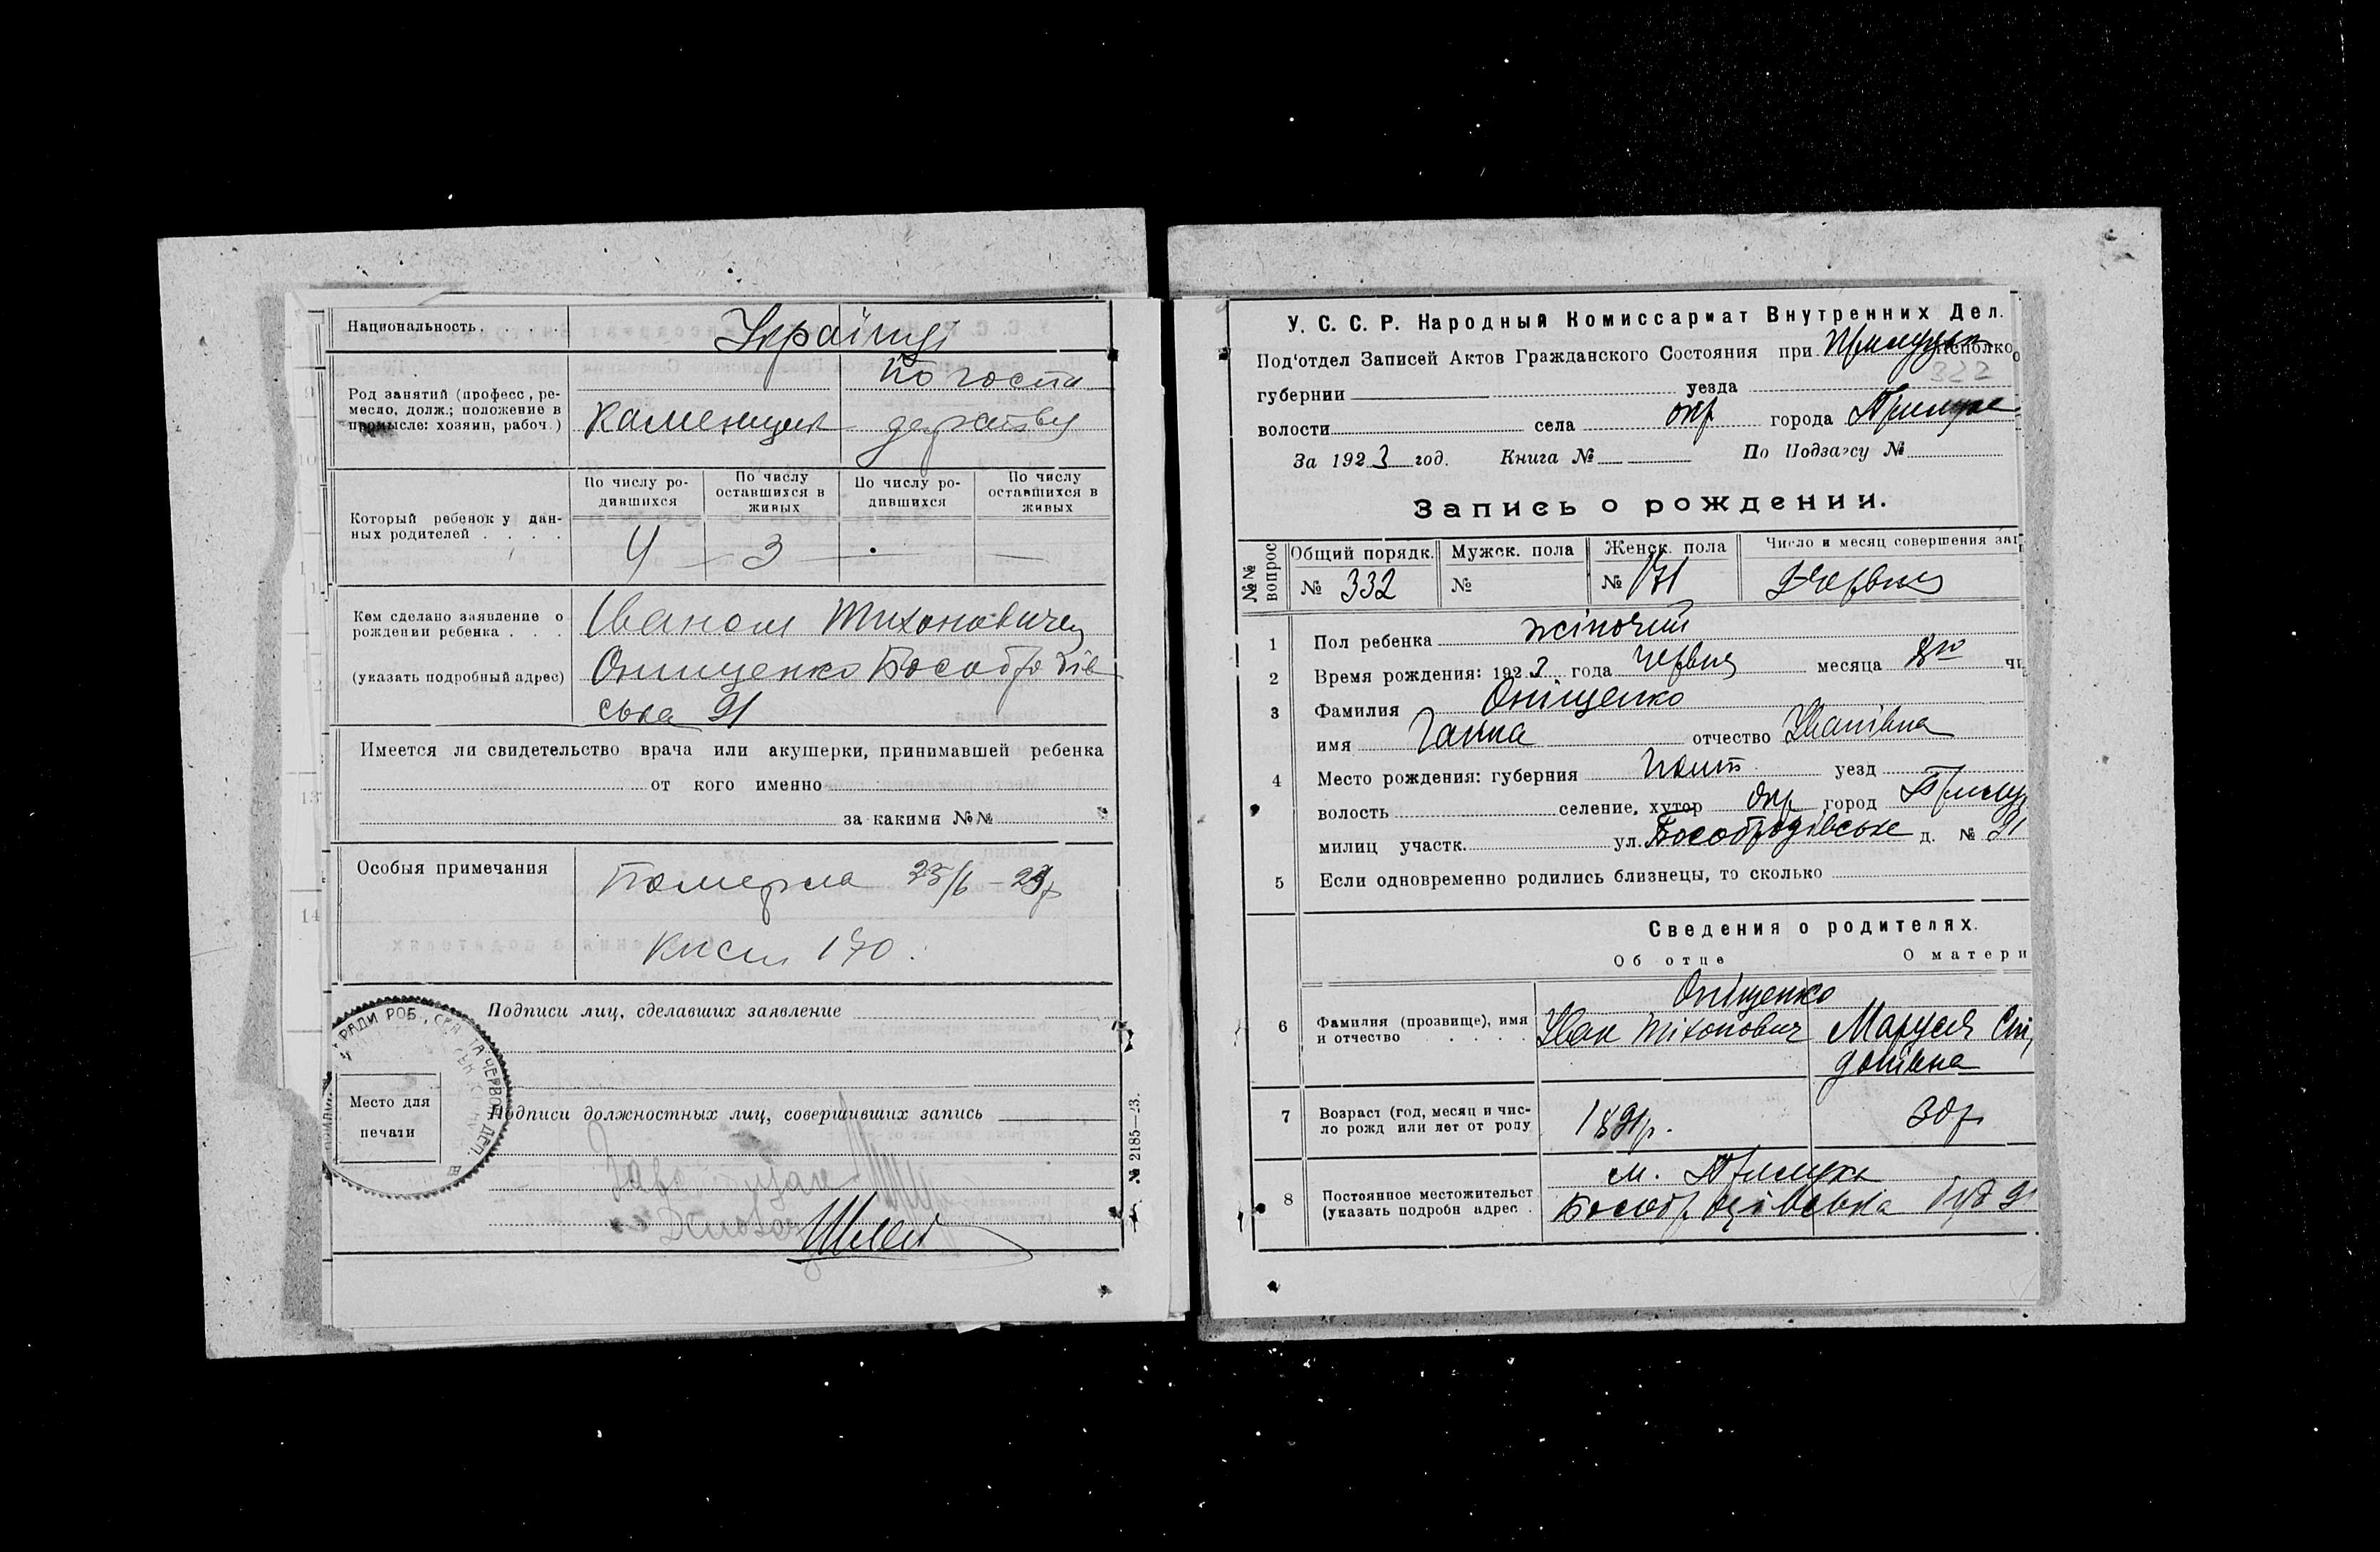 Национальность . . . .
Українці
Род занятий (професс, ре-
месло, долж.; положение в
промысле: хозяин, рабоч.)
Каменщик
по госпо
дарству
Который ребенок у дан-
ных родителей . . . .
По числу ро-
дившихся
По числу
оставшихся в
живых
По числу ро-
дившихся
По числу
оставшихся в
живых
4 — 3 — —
Кем сделано заявление о
рождении ребенка . . .
(указать подробный адрес)
Іваном Тихоновичем
Онищенко Бособродів
ська 91
Имеется ли свидетельство врача или акушерки, принимавшей ребенка
от кого именно
за какими №№
Особыя примечания
Померла 25/6 – 23р
170.
Подписи лиц, сделавших заявление
Подписи должностных лиц, совершивших запись
Место для
печати
РАДИ РОБ., СЕЛ. ТА ЧЕРВОН. ДЕП.
№ 2185—23.
У. С. С. Р. Народный Комиссариат Внутренних Дел.
Под'отдел Записей Актов Гражданского Состояния при Прилуцьк исполко
322
губернии уезда
волости села окр города Прилуки
За 1923 год. Книга № По Подзагсу №
Запись о рождении.
№№ вопрос
Общий порядк. Мужск. пола Женск. пола Число и месяц совершения зап
№ 332 № № 171 9 Червня
1 Пол ребенка жіночий
2 Время рождения: 1923 года Червня месяца 8го чи
3 Фамилия Оніщенко
имя Ганна отчество Іванівна
4 Место рождения: губерния Полт уезд
волость селение, хутор окр город Прилу
милиц участк. ул. Бособродівське д. № 91
5 Если одновременно родились близнецы, то сколько
Сведения о родителях.
Об отце О матери
Оніщенко
6 Фамилия (прозвище), имя
и отчество . . . .
Іван Тіхонович
Маруся Спі
донівна
7 Возраст (год, месяц и чис-
ло рожд или лет от роду
1891р.
30р
8 Постоянное местожительст
(указать подробн адрес .
м. Прилуки
Бособродівська буд 91